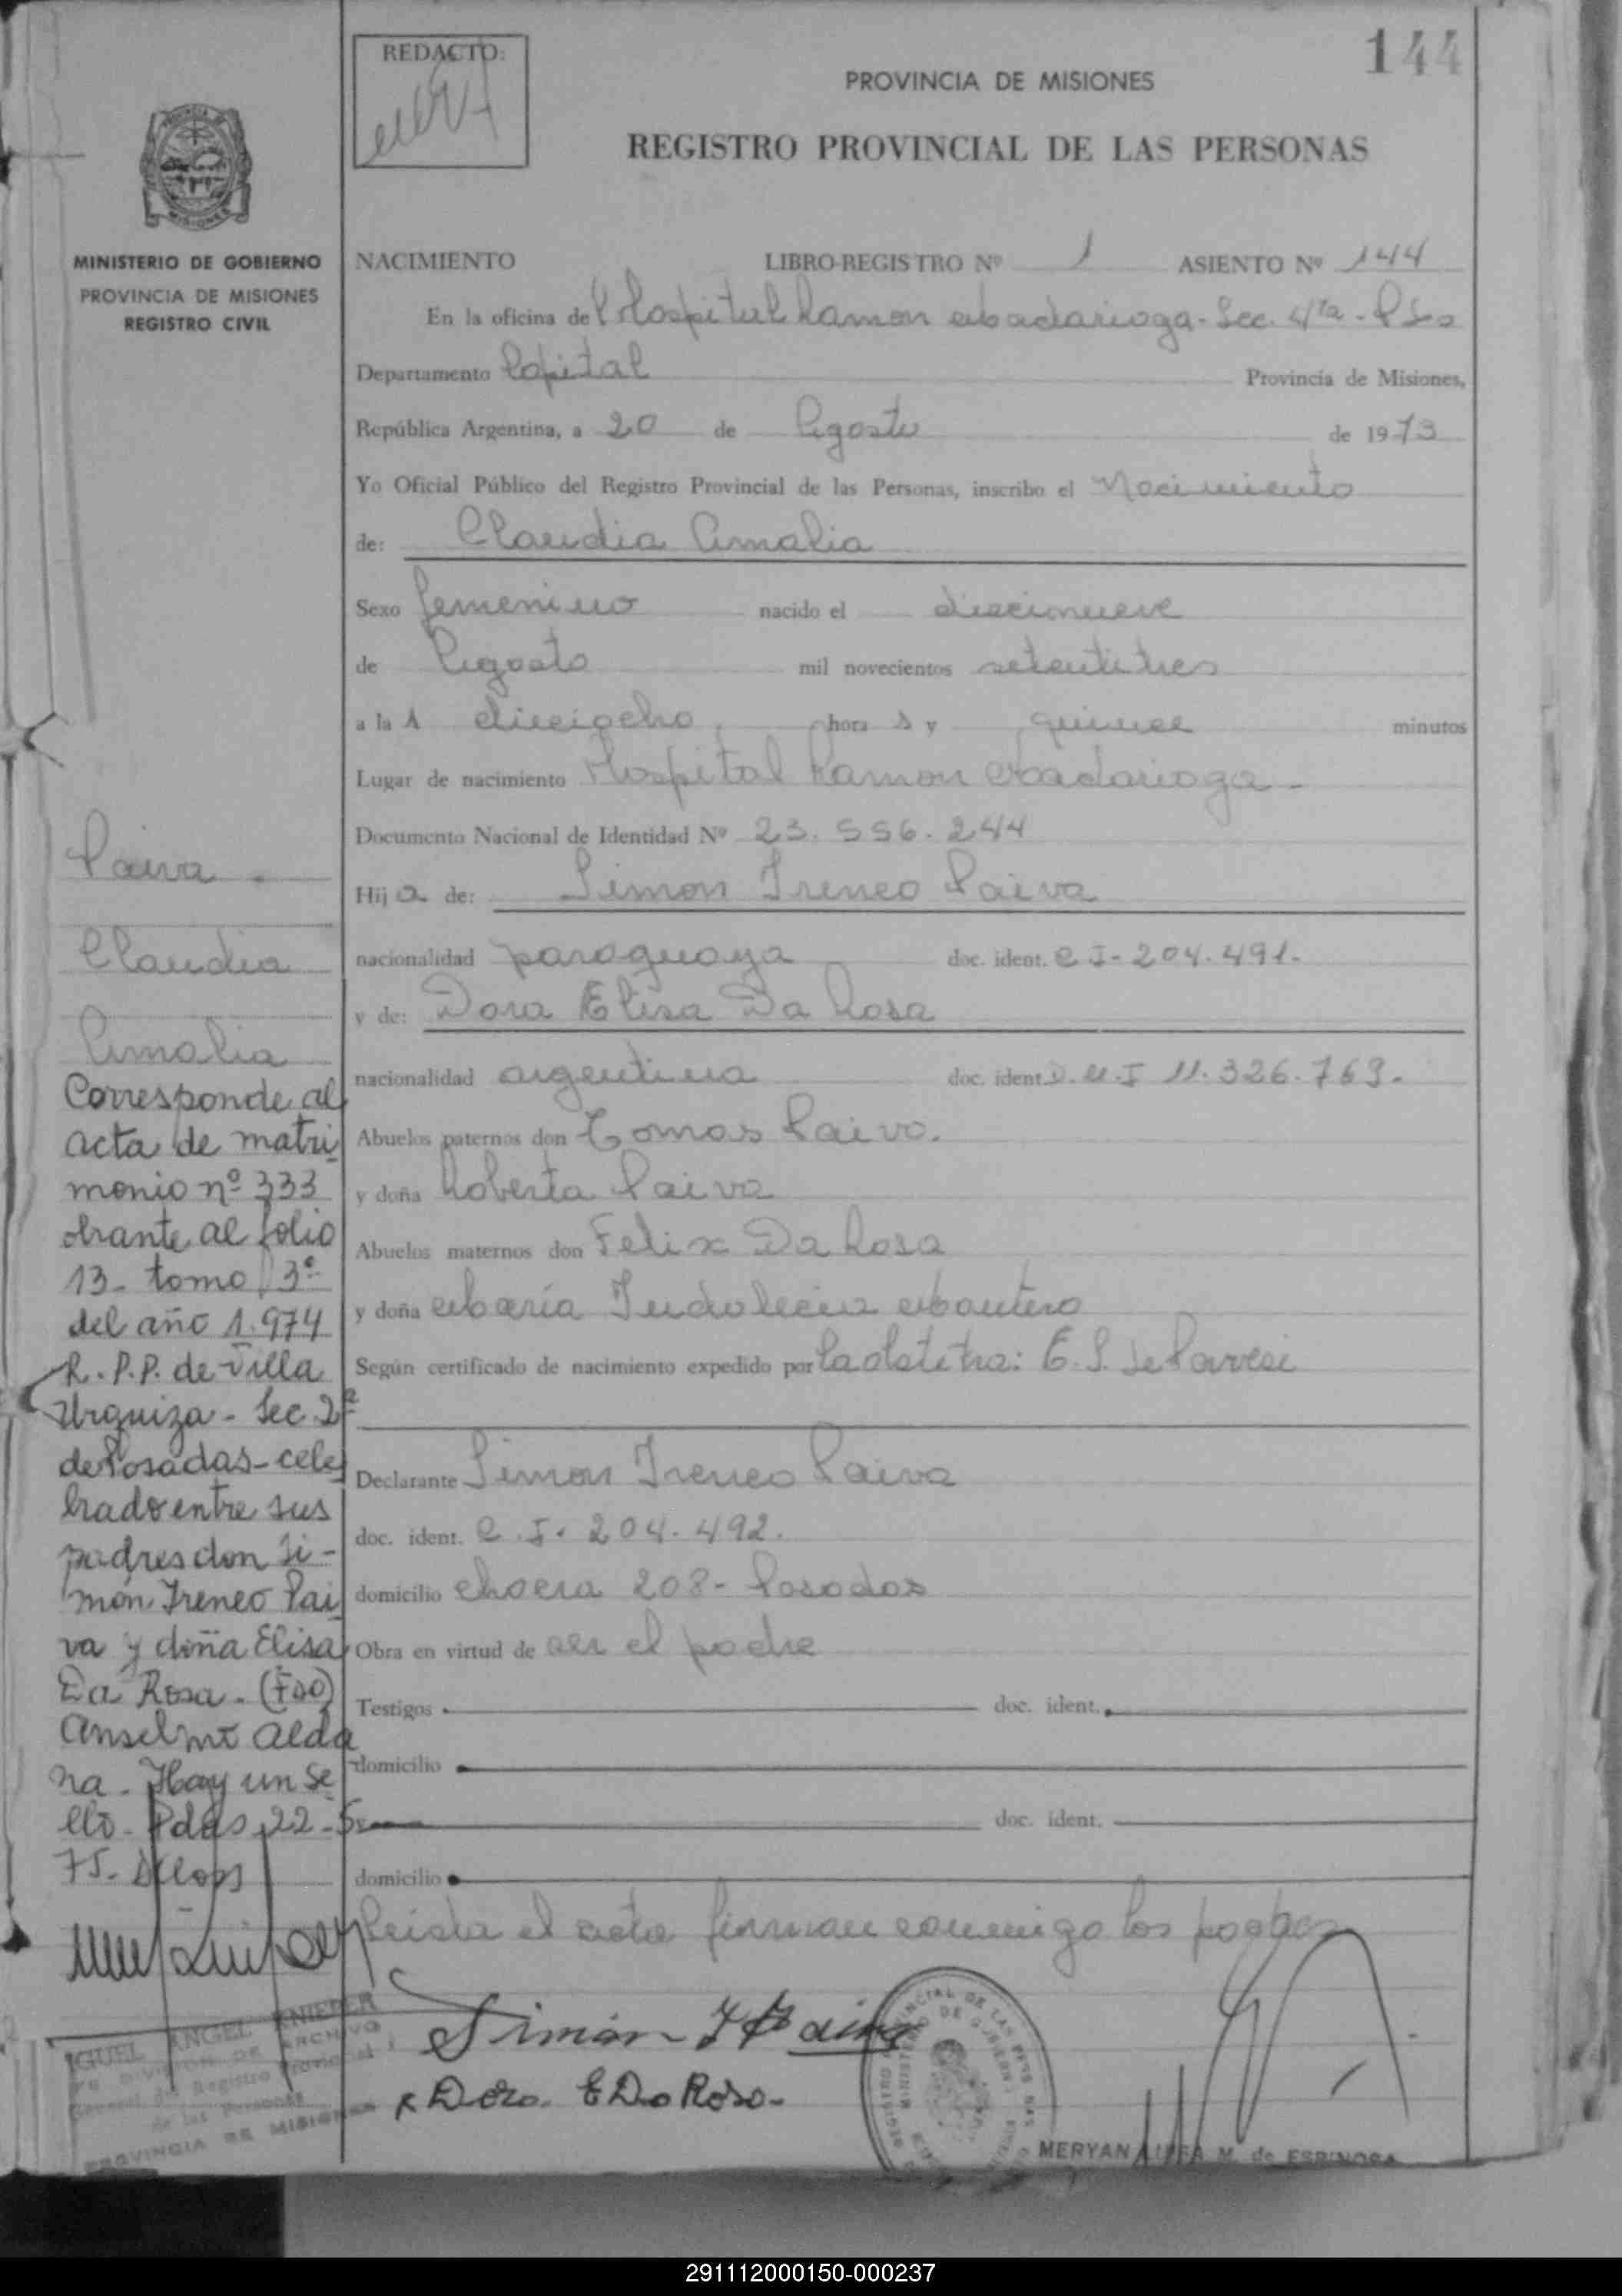 144
REDACTO:
PROVINCIA DE MISIONES
REGISTRO PROVINCIAL DE LAS PERSONAS
MINISTERIO DE GOBIERNO
PROVINCIA DE MISIONES
REGISTRO CIVIL
NACIMIENTO LIBRO-REGISTRO Nº 1 ASIENTO Nº 144
En la oficina del Hospital Ramon Madariaga - Sec. 4ta - Pdas
Departamento Capital Provincia de Misiones,
República Argentina, a 20 de Agosto de 1973
Yo Oficial Público del Registro Provincial de las Personas, inscribo el Nacimiento
de: Claudia Amalia
Sexo femenino nacido el diecinueve
de Agosto mil novecientos setentitres
a la s dieciocho hora s y quince minutos
Lugar de nacimiento Hospital Ramon Madariaga -
Documento Nacional de Identidad Nº 23.556.244
Hij a de: Simon Ireneo Paiva
nacionalidad paraguaya doc. ident. C I - 204.491.
y de: Dora Elisa Da Rosa
nacionalidad argentina doc. ident. D.N.I 11.326.769.
Abuelos paternos don Tomas Paiva.
y doña Roberta Paiva
Abuelos maternos don Felix Da Rosa
y doña Maria Indolecia Montero
Según certificado de nacimiento expedido por la obstetra: E. S. de
Declarante Simon Ireneo Paiva
doc. ident. C.I. 204.492.
domicilio Chacra 208 - Posadas
Obra en virtud de ser el padre
Testigos doc. ident.
domicilio
doc. ident.
domicilio
Leida el acta firman conmigo los padres
Simón I Paiva
Dora. E Da Rosa.
MERYAN LUISA M. de ESPINOSA
Paiva -
Claudia
Amalia
Corresponde al
acta de matri
monio nº 333
obrante al folio
13- tomo 3º
del año 1.974
R.P.P. de Villa
Urquiza - Sec. 2ª
de Posadas - cele
brado entre sus
padres don Si-
món Ireneo Pai
va y doña Elisa
Da Rosa. (Fdo)
Anselmo Alda
na. Hay un se
llo. Pdas, 22-5-
75.
MIGUEL ANGEL KNIEPER
DIVISION DE ARCHIVO
General del Registro Provincial
de las Personas
PROVINCIA DE MISIONES
291112000150-000237